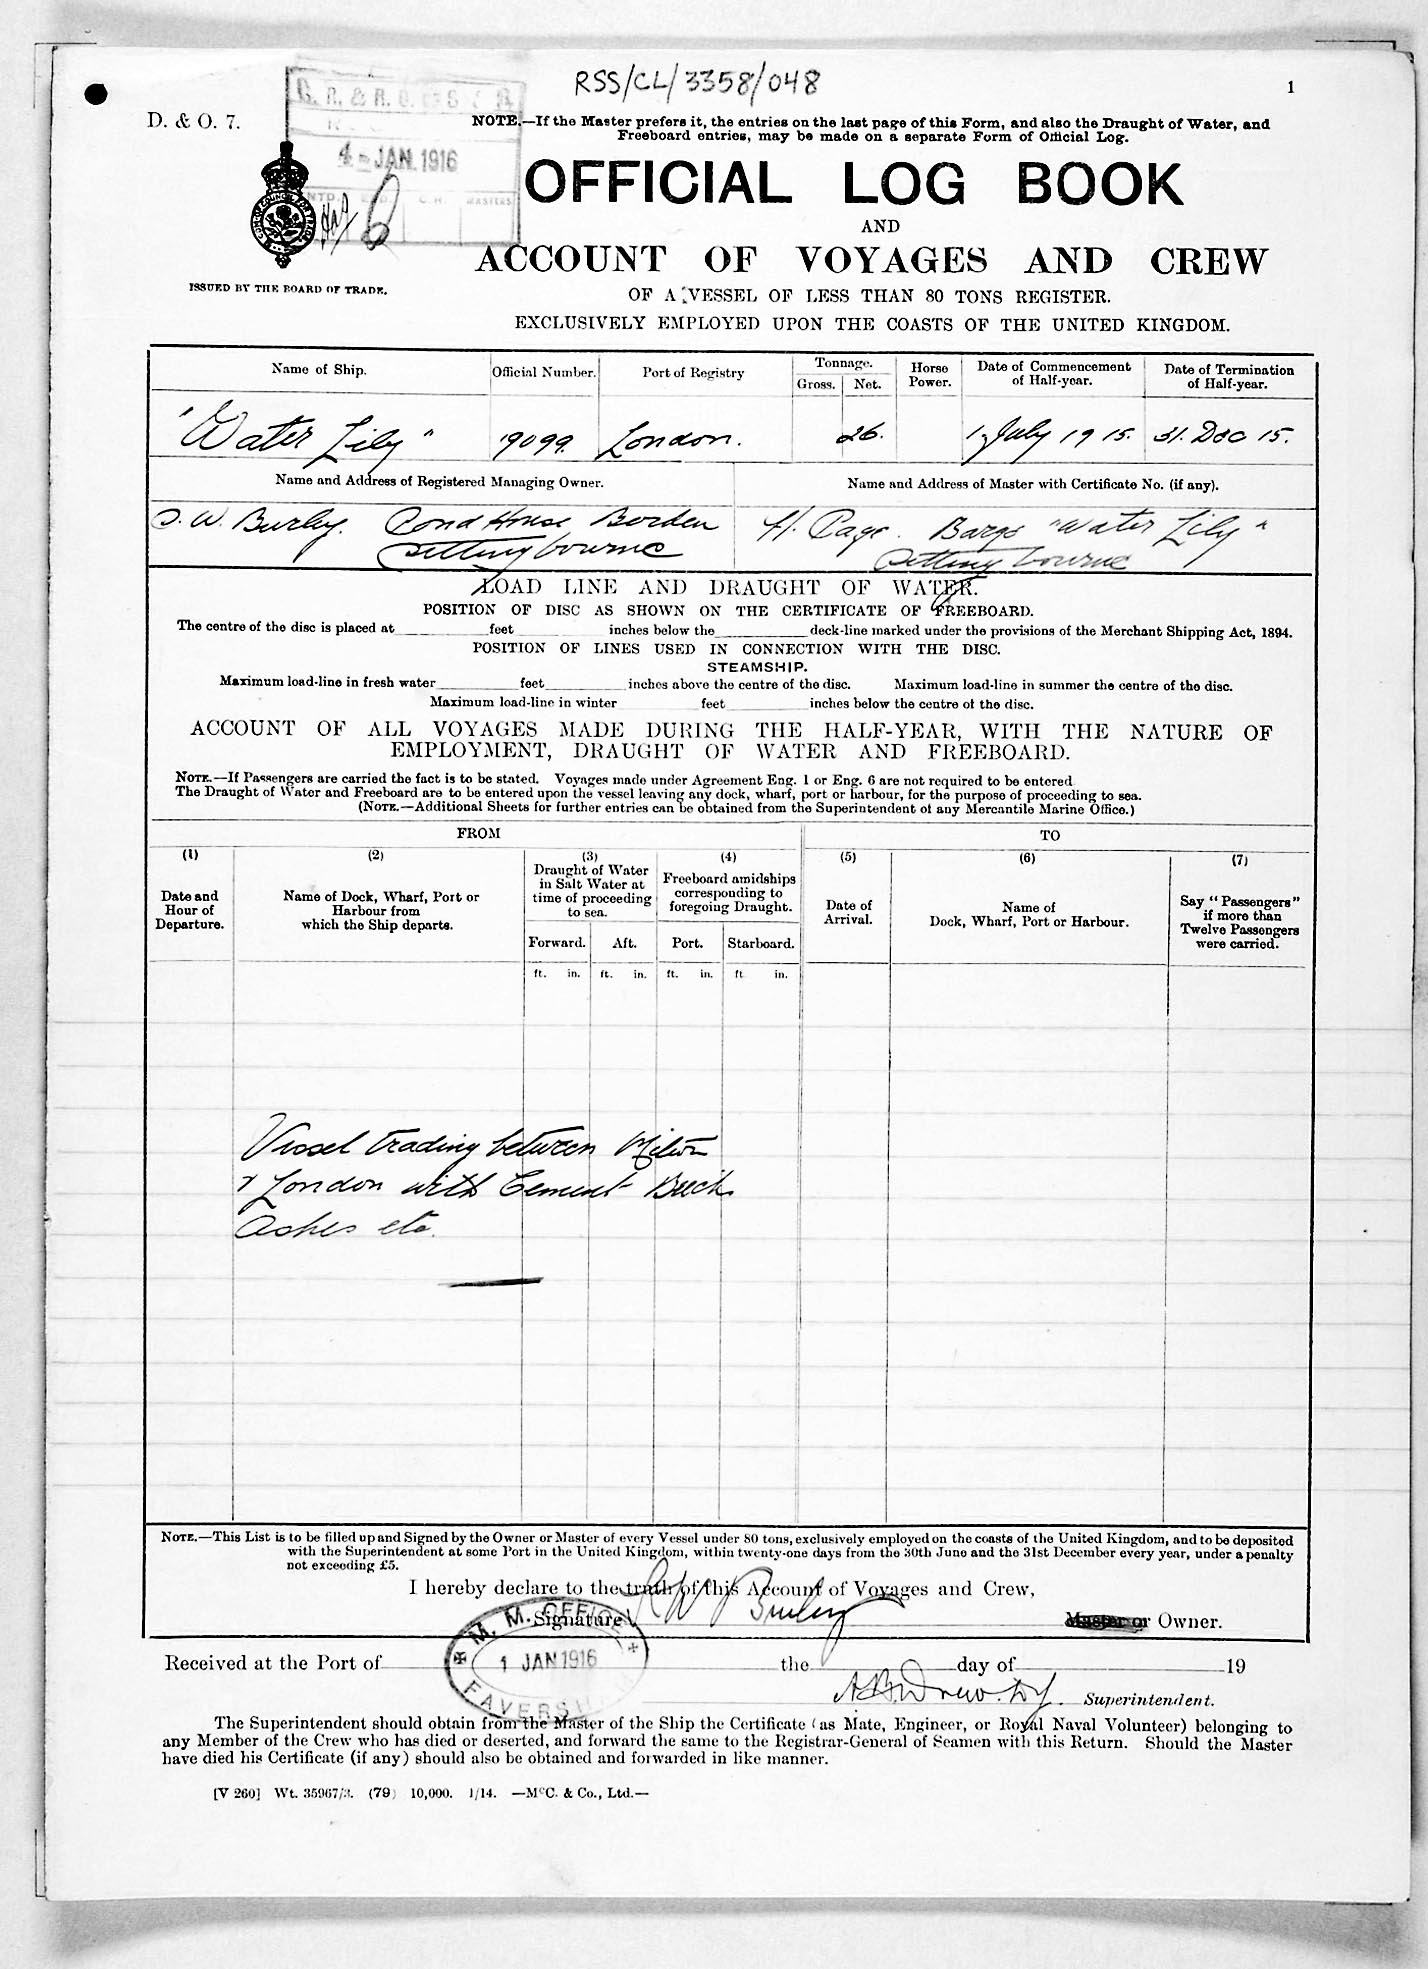 RSS/CL/3358/048
1
D. & O. 7.
4 - JAN. 1916
NOTE.—If the Master prefers it, the entries on the last page of this Form, and also the Draught of Water, and
Freeboard entries, may be made on a separate Form of Official Log.
OFFICIAL LOG BOOK
AND
ACCOUNT OF VOYAGES AND CREW
ISSUED BY THE BOARD OF TRADE.
OF A VESSEL OF LESS THAN 80 TONS REGISTER.
EXCLUSIVELY EMPLOYED UPON THE COASTS OF THE UNITED KINGDOM.
Name of Ship. Official Number. Port of Registry Tonnage. Gross. Net. Horse Power. Date of Commencement of Half-year. Date of Termination of Half-year.
"Water Lily" 9099. London. 26. 1 July 1915. 31. Dec 15.
Name and Address of Registered Managing Owner. Name and Address of Master with Certificate No. (if any).
W. Burley. Pond House Borden H. Page. Barge "Water Lily"
Sittingbourne Sittingbourne
LOAD LINE AND DRAUGHT OF WATER.
POSITION OF DISC AS SHOWN ON THE CERTIFICATE OF FREEBOARD.
The centre of the disc is placed at feet inches below the deck-line marked under the provisions of the Merchant Shipping Act, 1894.
POSITION OF LINES USED IN CONNECTION WITH THE DISC.
STEAMSHIP.
Maximum load-line in fresh water feet inches above the centre of the disc. Maximum load-line in summer the centre of the disc.
Maximum load-line in winter feet inches below the centre of the disc.
ACCOUNT OF ALL VOYAGES MADE DURING THE HALF-YEAR, WITH THE NATURE OF
EMPLOYMENT, DRAUGHT OF WATER AND FREEBOARD.
NOTE.—If Passengers are carried the fact is to be stated. Voyages made under Agreement Eng. 1 or Eng. 6 are not required to be entered
The Draught of Water and Freeboard are to be entered upon the vessel leaving any dock, wharf, port or harbour, for the purpose of proceeding to sea.
(NOTE.—Additional Sheets for further entries can be obtained from the Superintendent of any Mercantile Marine Office.)
FROM TO
(1) (2) (3) (4) (5) (6) (7)
Date and Hour of Departure.
Name of Dock, Wharf, Port or Harbour from which the Ship departs.
Draught of Water in Salt Water at time of proceeding to sea.
Freeboard amidships corresponding to foregoing Draught.
Date of Arrival.
Name of Dock, Wharf, Port or Harbour.
Say "Passengers" if more than Twelve Passengers were carried.
Forward. Aft. Port. Starboard.
ft. in. ft. in. ft. in. ft in.
Vessel trading between Milton
& London with Cement Brick
Ashes etc.
NOTE.—This List is to be filled up and Signed by the Owner or Master of every Vessel under 80 tons, exclusively employed on the coasts of the United Kingdom, and to be deposited
with the Superintendent at some Port in the United Kingdom, within twenty-one days from the 30th June and the 31st December every year, under a penalty
not exceeding £5.
I hereby declare to the truth of this Account of Voyages and Crew,
Signature Burley Master or Owner.
M. M. OFFICE
1 JAN 1916
FAVERSHAM
Received at the Port of the day of 19
Superintendent.
The Superintendent should obtain from the Master of the Ship the Certificate (as Mate, Engineer, or Royal Naval Volunteer) belonging to
any Member of the Crew who has died or deserted, and forward the same to the Registrar-General of Seamen with this Return. Should the Master
have died his Certificate (if any) should also be obtained and forwarded in like manner.
[V 260] Wt. 35967/3. (79) 10,000. 1/14. —McC. & Co., Ltd.—